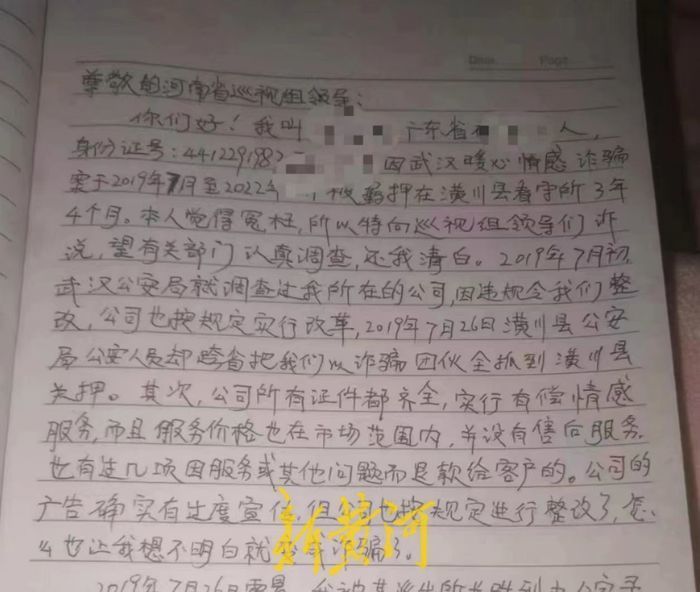 Date. Page.
尊敬的河南省巡视组领导:
你们好!我叫 广东省 人,
身份证号:441229198 因武汉暖心情感诈骗
案于2019年7月至2022年 ,被羁押在潢川县看守所3年
4个月。本人觉得冤枉,所以特向巡视组领导们诉
说,望有关部门认真调查,还我清白。2019年7月初,
武汉公安局就调查过我所在的公司,因违规令我们整
改,公司也按规定实行改革,2019年7月26日潢川县公安
局公安人员却跨省把我们以诈骗团伙全抓到潢川县
关押。其次,公司所有证件都齐全,实行有偿情感
服务,而且服务价格也在市场范围内,并没有售后服务,
也有过几项因服务或其他问题而退款给客户的。公司的
广告确实有过度宣传 但公司也按规定进行整改了,怎
么也让我想不明白就 诈骗了。
新黄河
2019年7月26日